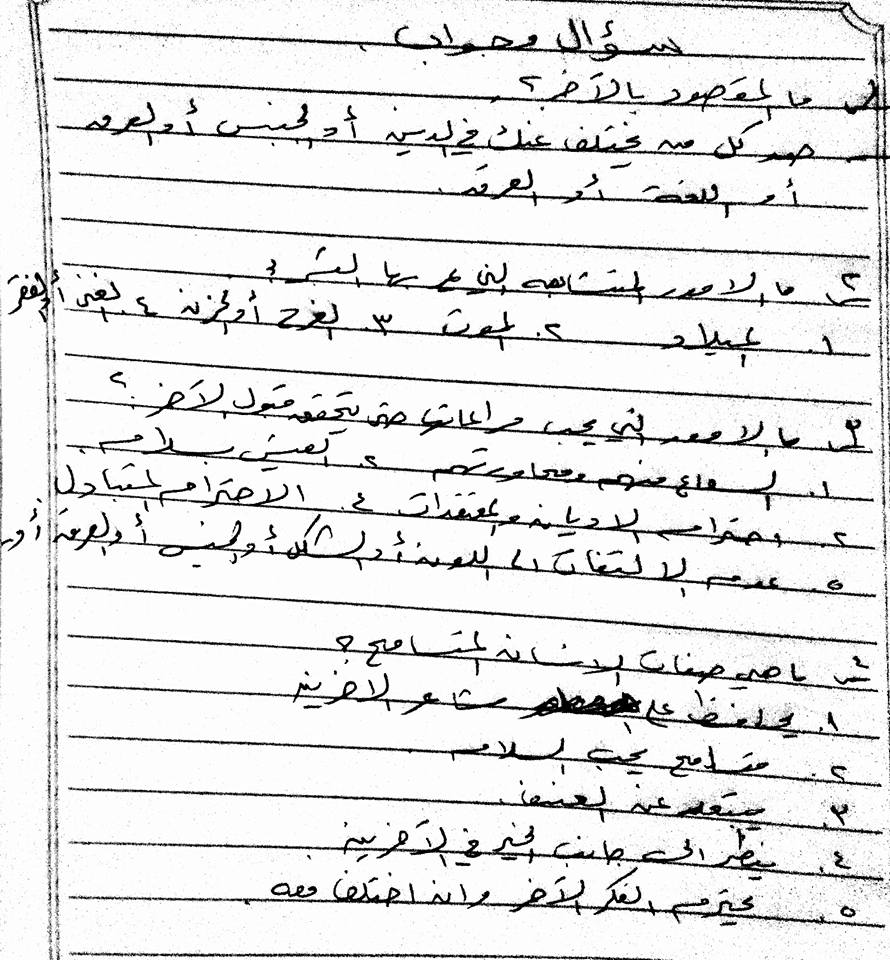 سؤال وجواب.
س١ ما المقصود بالآخر؟
هو كل من يختلف عنك في الدين أو الجنس أو العرق
أو اللغة أو العرق.
س٢ ما الامور المتشابهه التي يمر بها البشر؟
١. الميلاد ٢. الموت ٣. الفرح أو الحزن ٤. الغنى أو الفقر
س٣ ما الامور التي يجب مراعاتها حتى يتحقق قبول الآخر؟
١. السماع منهم ومحاورتهم ٢. العيش بسلام.
٣. احترام الاديان والمعتقدات ٤. الاحترام المتبادل
٥. عدم الالتفات الى اللون أو الشكل أو الجنس أو العرق أو
س٤ ما هي صفات الانسان المتسامح؟
١. يحافظ على مشاعر الاخرين
٢. متسامح يحب السلام.
٣. يبتعد عن العنف.
٤. ينظر الى جانب الخير في الآخرين.
٥. يحترم الفكر الآخر وان اختلف معه.